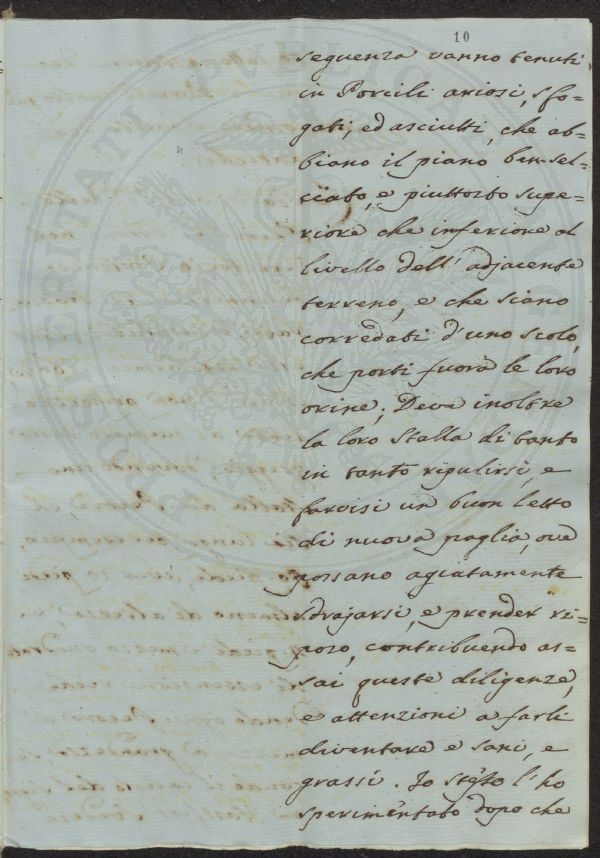 10
seguenza vanno tenuti,
in Porcili ariosi, sfo=
gati, ed asciutti, che ab=
biano il piano ben sel=
ciato, e piuttosto supe=
riore che inferiore al
livello dell' adjacente
terreno, e che siano
corredati d'uno scolo,
che porti fuora le loro
orine; Deve inoltre
la loro Stalla di tanto
in tanto ripulirsi, e
farvisi un buon letto
di nuova paglia, ove
possano agiatamente
sdrajarsi, e prender ri=
poso, contribuendo as=
sai queste diligenze,
e attenzioni a farli
diventare e sani, e
grassi. Io stesso l'ho
sperimentato dopo che